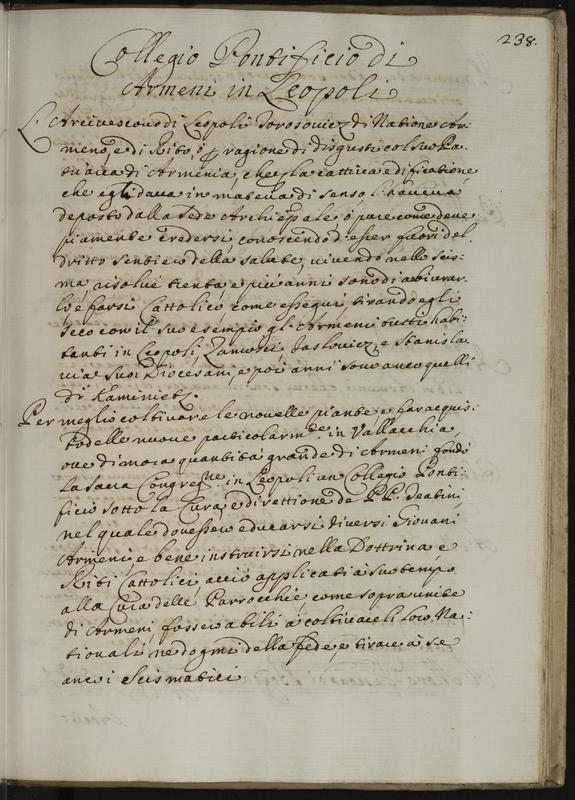 238.
Collegio Pontificio di
Armeni in Leopoli
L'Arcivescovo di Leopoli Torosovicz di Natione Ar:
meno, e di Rito, ò ragione di disgusti col suo Pa:
triarca di Armenia, che la cattiva edificatione
che egli dava in materia di senso l'haveva
deposto dalla Sede Archiepale, ò pure come deve
piamente credersi, conoscendo d'esser fuori del
dritto sentiero della salute, vivendo nello scis:
ma, risolvè trenta, e più anni sono di abiurar:
lo e farsi Cattolico come esseguì, tirando egli
seco con il suo esempio gl'Armeni tutti habi:
tanti in Leopoli, Jaslovicz, e Stanisla
via suoi Diocesani, e poi anni sono anco quelli
di Kaminietz.
Per meglio coltivare le novelle piante e far acquis:
to delle nuove particolarmte. in Vallacchia,
ove dimora quantità grande di Armeni fondò
la Sacra Congregne. in Leopoli un Collegio Ponti:
ficio sotto la Cura, e direttione de PP. Teatini,
nel quale dovessero educarsi diversi Giovani
Armeni e bene instruirsi nella Dottrina, e
Riti Cattolici, acciò applicati à suo tempo
alla Cura delle Parrocchie, come sopra unite
di Armeni, fossero abili à coltivare li loro Na:
tionali ne dogmi della fede, e tirare à se
anco i Scismatici